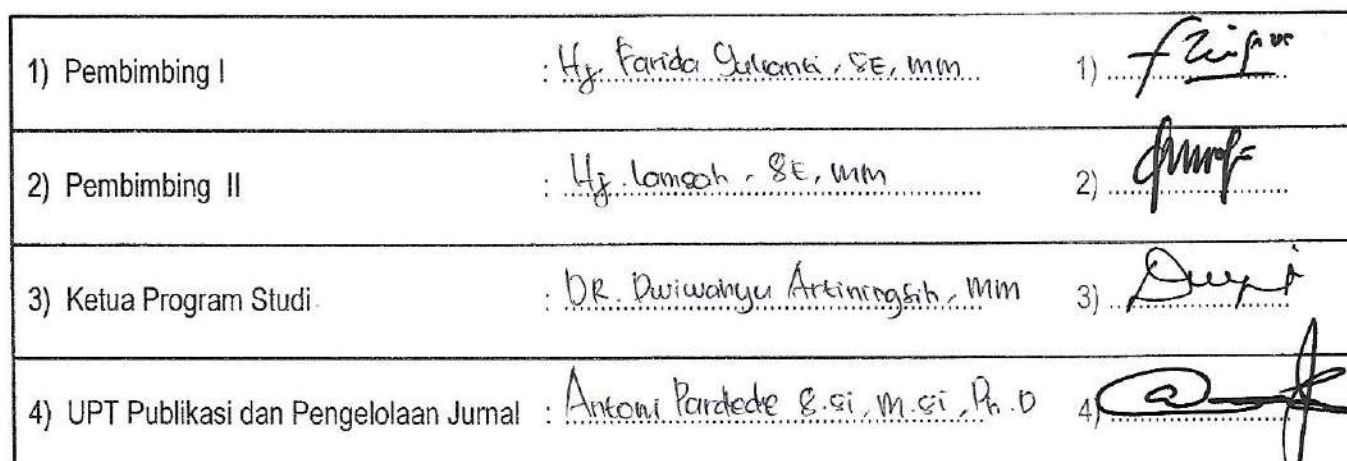 1) Pembimbing I : Hj. Farida Yulianti, SE, MM 1)
2) Pembimbing II : Hj. Lamsah, SE, MM 2)
3) Ketua Program Studi : DR. Dwiwahyu Artiningsih, MM 3)
4) UPT Publikasi dan Pengelolaan Jurnal : Antoni Pardede S.si, M.si, Ph.D 4)